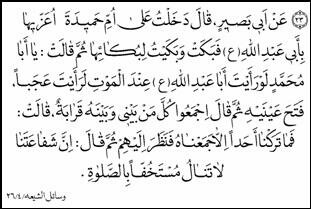 (٢٣) عَنْ اَبى بَصيرٍ، قالَ دَخَلْتُ عَلىٰ اُمِّ حَميدَةَ اُعَزّيها
بِاَبى عَبْدِاللهِ (ع) فَبَكَتْ وَبَكَيْتُ لِبُكائِها ثُمَّ قالَتْ: يا اَبا
مُحَمَّدٍ لَوْرَاَيْتَ اَبا عَبْدِاللهِ (ع) عِنْدَ الْمَوْتِ لَرَاَيْتَ عَجَباً،
فَتَحَ عَيْنَيْهِ ثُمَّ قالَ اِجْمَعُوا كُلَّ مَنْ بَيْنى وَبَيْنَهُ قَرابَةٌ، قالَتْ:
فَما تَرَكْنا اَحَداً اِلّاجَمَعْناهُ فَنَظَرَ اِلَيْهِمْ ثُمَّ قالَ: اِنَّ شَفاعَتَنا
لا تَنالُ مُسْتَخِفّاً بِالصَّلوٰةِ.
وسائل الشيعه/٢٦/٤